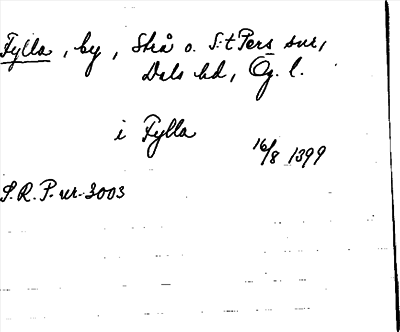 Fylla, by, Strå o. S:t Pers snr,
Dals hd, Ög. l.
i Fylla
16/8 1399
S.R.P. nr 3003